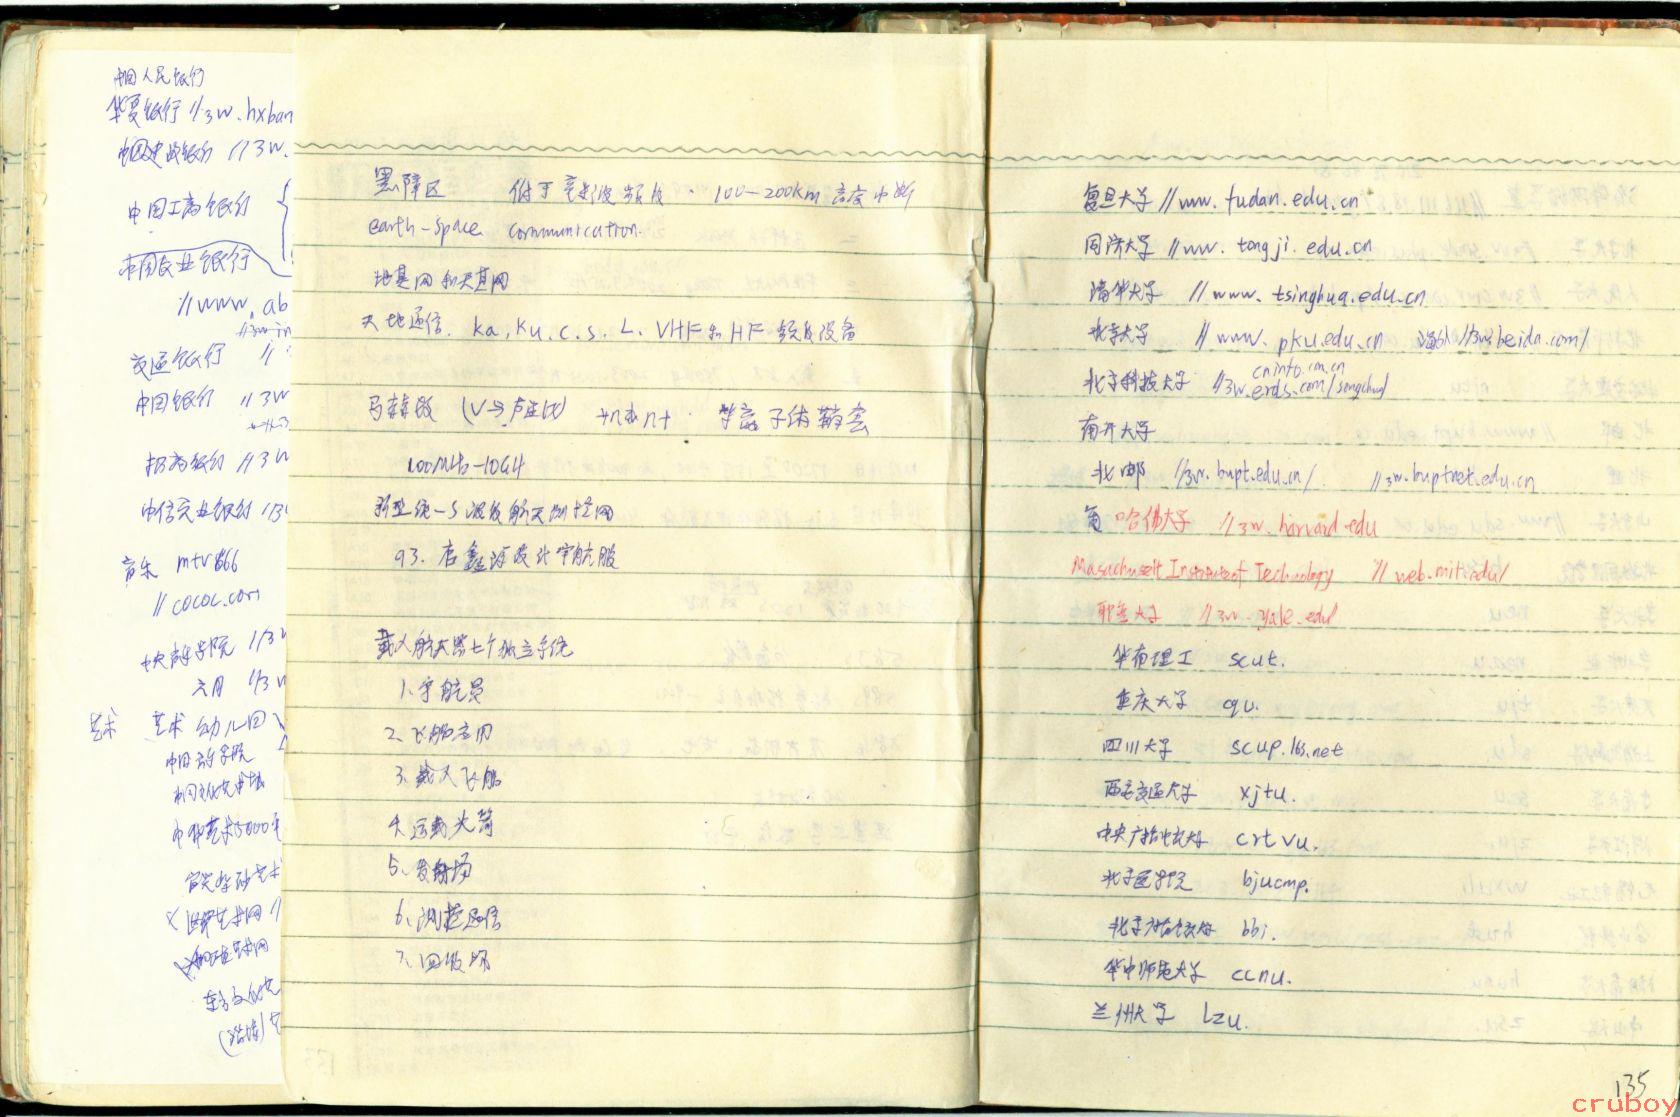 中国人民银行
华夏银行 //3w.hxban
中国建设银行 //3w.
中国工商银行
中国农业银行
//www.ab
交通银行 //
中国银行 //3w
招商银行 //3w
中信实业银行 //3w
音乐 mtv866
//cococ.com
中央音乐学院 //3w
六月 //3w
艺术 艺术幼儿园
中国音乐学院
中国文化艺术城
中华艺术5000年
世界艺术网 //
东方文化艺
黑障区 位于 频段. 100-200km高度中断
earth-space communication.
地基网和天基网
天地通信. ka, ku, c, s, L, VHF和HF 频段设备
马赫数 (V→声速比)
100MHz-10GH
新型统一S波段航天测控网
93. 唐鑫源设计宇航服
载人航天器七个独立系统
1. 宇航员
2. 飞船应用
3. 载人飞船
4. 运载火箭
5. 发射场
6. 测控通信
7. 回收场
复旦大学 //www.fudan.edu.cn
同济大学 //www.tongji.edu.cn
清华大学 //www.tsinghua.edu.cn
北京大学 //www.pku.edu.cn //3w.beida.com/
cninfo.cn.cn
北京科技大学 //3w.erds.com/songchud
南开大学
北邮 //3w.bupt.edu.cn/ //3w.buptnet.edu.cn
哈佛大学 //3w.harvard.edu
Masachusett Institute of Technology // web.mit.edu/
耶鲁大学 //3w.yale.edu/
华南理工 scut.
重庆大学 cqu.
四川大学 scup.163.net
西安交通大学 xjtu.
中央广播电大 crtvu.
北京医学院 bjucmp.
北京广播电大 bbi.
华中师范大学 ccnu.
兰州大学 lzu.
135
cruboy